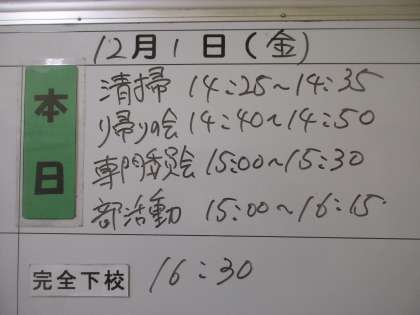 12月1日(金)
本日
清掃 14:25～14:35
り帰りの会 14:40～14:50
専門委員会 15:00～15:30
部活動 15:00～16:15
完全下校 16:30